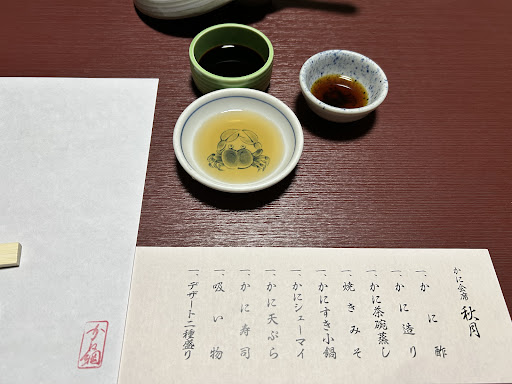 かに会席 秋月
一、かに酢
一、かに造り
一、かに茶碗蒸し
一、焼きみそ
一、かにすき小鍋
一、かにシューマイ
一、かに天ぷら
一、かに寿司
一、吸い物
一、デザート二種盛り